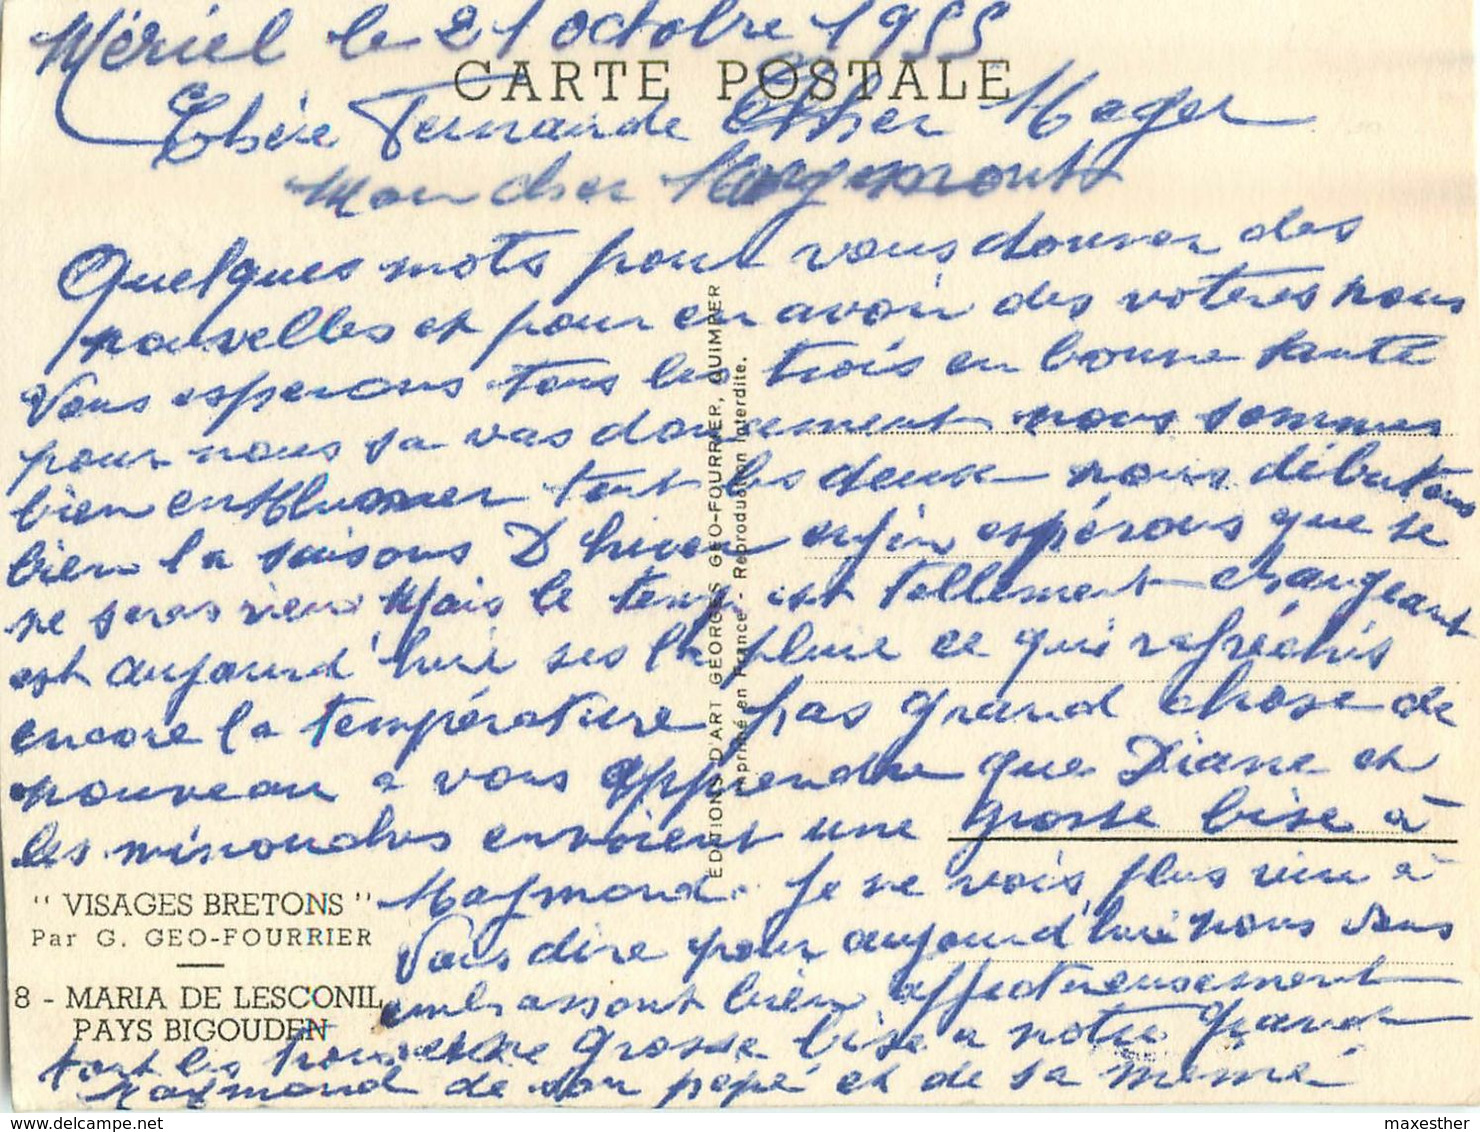 Mériel le 21 octobre 1955
CARTE POSTALE
Chère Fernande Cher Roger
Mon cher Raymond
Quelques mots pour vous donner des
nouvelles et pour en avoir des votres nous
Vous esperons tous les trois en bonne santé
pour nous sa vas doucement nous sommes
bien enrhumer tout les deux nous débutons
bien la saisons D hiver enfin espérons que se
ne seras rien Mais le temp est tellement changeant
est aujourd'huie ses la pluie ce qui rafréchis
encore la température pas grand chose de
nouveau a vous apprendre que Diane et
les minouches envoient une grosse bise à
Raymond. Je ne vois plus rien à
Vous dire pour aujourd'huie nous vous
embrassont bien affectueusement
tout les trois une grosse bise a notre grand
Raymond de son pepé et de sa memé
" VISAGES BRETONS "
Par G. GEO-FOURRIER
8 - MARIA DE LESCONIL
PAYS BIGOUDEN
EDITIONS D'ART GEORGES GEO-FOURRIER, QUIMPER
Imprimé en France - Reproduction interdite.
delcampe.net
maxesther